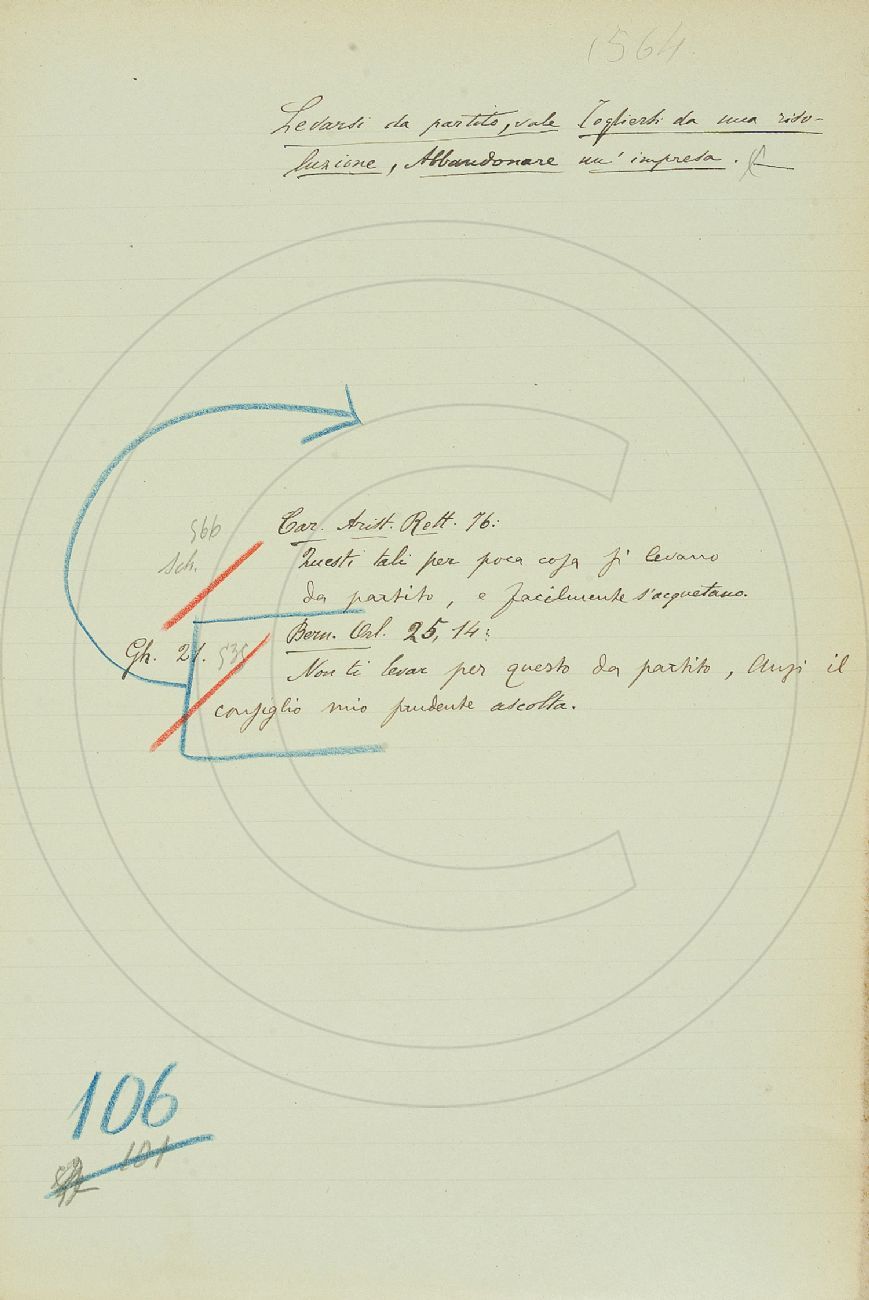 1564.
Levarsi da partito, vale Togliersi da una riso-
luzione, Abbandonare un' impresa.
566
Sch.
Car. Arist. Rett. 76:
Questi tali per poca cosa si levano
da partito, e facilmente s'acquetano.
Bern. Orl. 25, 14:
Gh. 21. 535
Non ti levar per questo da partito, Anzi il
consiglio mio prudente ascolta.
106
101